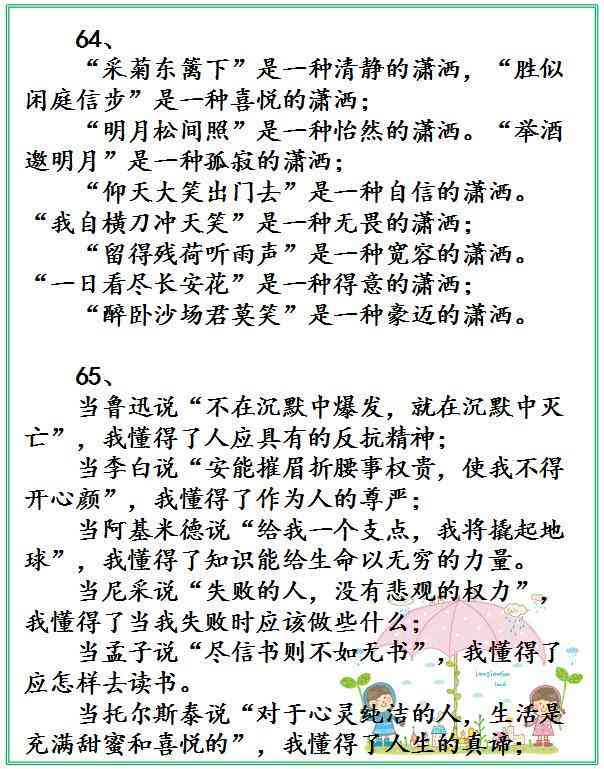 64、
“采菊东篱下”是一种清静的潇洒，“胜似
闲庭信步”是一种喜悦的潇洒；
“明月松间照”是一种怡然的潇洒。“举酒
邀明月”是一种孤寂的潇洒；
“仰天大笑出门去”是一种自信的潇洒。
“我自横刀冲天笑”是一种无畏的潇洒；
“留得残荷听雨声”是一种宽容的潇洒。
“一日看尽长安花”是一种得意的潇洒；
“醉卧沙场君莫笑”是一种豪迈的潇洒。
65、
当鲁迅说“不在沉默中爆发，就在沉默中灭
亡”，我懂得了人应具有的反抗精神；
当李白说“安能摧眉折腰事权贵，使我不得
开心颜”，我懂得了作为人的尊严；
当阿基米德说“给我一个支点，我将撬起地
球”，我懂得了知识能给生命以无穷的力量。
当尼采说“失败的人，没有悲观的权力”，
我懂得了当我失败时应该做些什么；
当孟子说“尽信书则不如无书”，我懂得了
应怎样去读书。
当托尔斯泰说“对于心灵纯洁的人，生活是
充满甜蜜和喜悦的”，我懂得了人生的真谛；